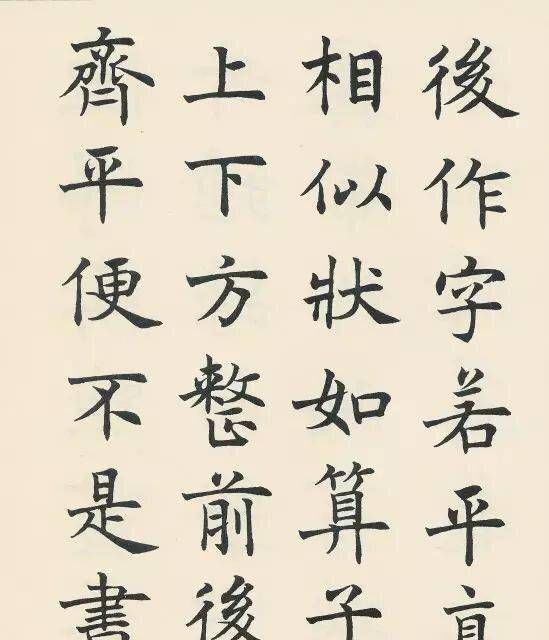 後作字若平直
相似狀如算子
上下方整前後
齊平便不是書